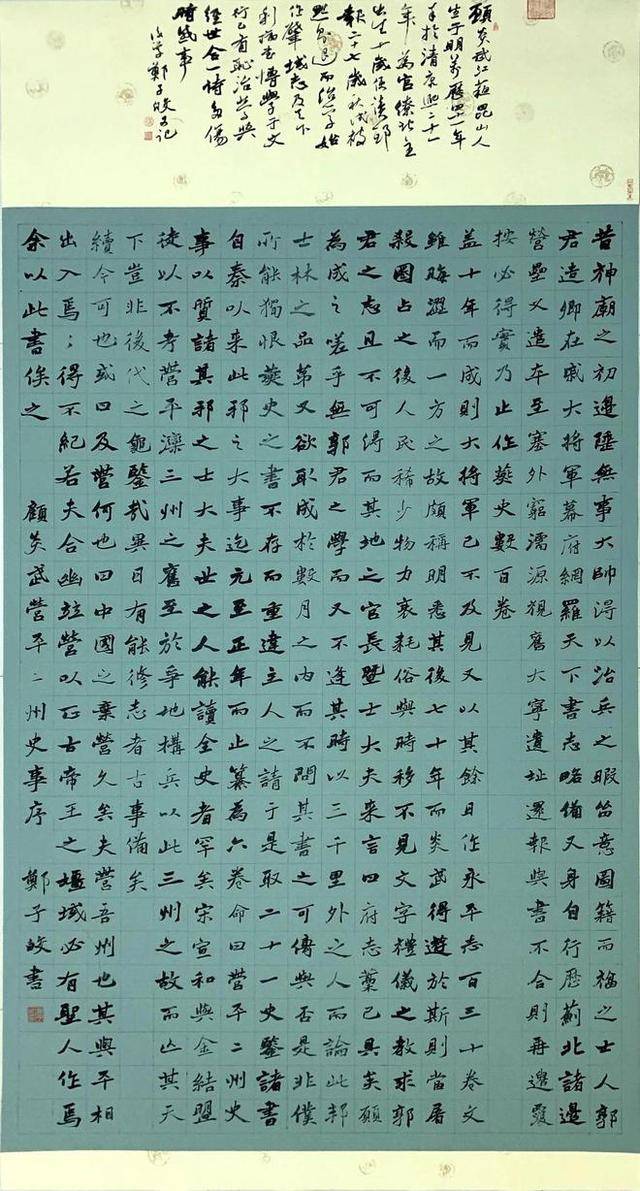 顧炎武江蘇昆山人
生于明萬曆四十一年
卒於清康熙二十一
年為官僚地主
出生十歲侯讀邸
報二十七歲秋試被
黜即退而治學始
作肇域志及天下
利病書博學于文
行己有恥治學與
經世合一時多傷
時感事
後學鄭子峻又記
昔神廟之初邊陲無事大帥得以治兵之暇留意圖籍而福之士人郭
君造卿在戚大將軍幕府網羅天下書志略備又身自行歷薊北諸邊
營壘又遣卒至塞外窮濡源視舊大寧遺址還報與書不合則再遣覆
按必得實乃止作燕史數百卷
蓋十年而成則大將軍已不及見又以其餘日作永平志百三十卷文
雖晦澀而一方之故頗稱明悉其後七十年而炎武得遊於斯則當屠
殺圈占之後人民稀少物力衰耗俗與時移不見文字禮儀之教求郭
君之志且不可得而其地之官長暨士大夫來言曰府志稾已具矣願
為成之嗟乎無郭君之學而又不逢其時以三千里外之人而論此邦
士林之品第又欲取成於數月之內而不問其書之可傳與否是非僕
所能獨恨燕史之書不存而重違主人之請于是取二十一史鑒諸書
自秦以來此邦之大事迄元至正年而止纂為六卷命曰營平二州史
事以質諸其邦之士大夫世之人能讀全史者罕矣宋宣和與金結盟
徒以不考營平灤三州之舊至於爭地構兵以此三州之故而亡其天
下豈非後代之龜鑒哉異日有能修志者古事備矣
續今可也或曰及營何也曰中國之棄營久矣夫營吾州也其與平相
出入焉〻得不紀若夫合幽並營以正古帝王之疆域必有聖人作焉
余以此書俟之 顧炎武營平二州史事序 鄭子峻書